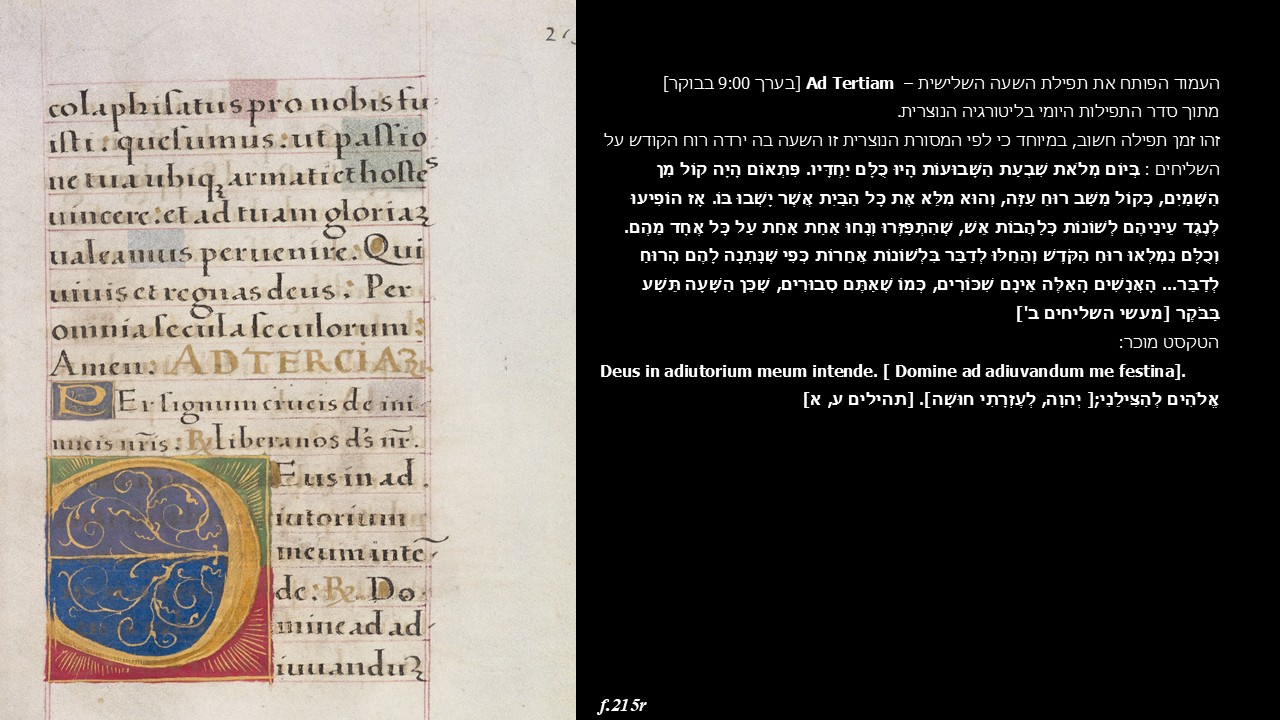 215
colaphisatus pro nobis fu
isti: quesumus: ut passio
ne tua ubiqꝫ armati et hostes
uincere: et ad tuam gloriaꝫ
ualeamus peruenire. Qui
uiuis et regnas deus: Per
omnia secula seculorum:
Amen. AD TERCIAꝫ
PEr signum crucis de ini
micis nr̃is: R̸ Libera nos d̃s nr̃.
Eus in ad
iutorium
meumintē
de: R̸. Do
mine ad ad
iuuanduꝫ
העמוד הפותח את תפילת השעה השלישית – Ad Tertiam [בערך 9:00 בבוקר]
מתוך סדר התפילות היומי בליטורגיה הנוצרית.
זהו זמן תפילה חשוב, במיוחד כי לפי המסורת הנוצרית זו השעה בה ירדה רוח הקודש על
השליחים : בְּיוֹם מְלֹאת שִׁבְעַת הַשָּׁבוּעוֹת הָיוּ כֻּלָּם יַחְדָּיו. פִּתְאוֹם הָיָה קוֹל מִן
הַשָּׁמַיִם, כְּקוֹל מַשַּׁב רוּחַ עַזָּה, וְהוּא מִלֵּא אֶת כָּל הַבַּיִת אֲשֶׁר יָשְׁבוּ בּוֹ. אָז הוֹפִיעוּ
לְנֶגֶד עֵינֵיהֶם לְשׁוֹנוֹת כְּלֶהָבוֹת אֵשׁ, שֶׁהִתְפַּזְּרוּ וְנָחוּ אַחַת אַחַת עַל כָּל אֶחָד מֵהֶם.
וְכֻלָּם נִמְלְאוּ רוּחַ הַקֹּדֶשׁ וְהֵחֵלּוּ לְדַבֵּר בִּלְשׁוֹנוֹת אֲחֵרוֹת כְּפִי שֶׁנָּתְנָה לָהֶם הָרוּחַ
לְדַבֵּר... הָאֲנָשִׁים הָאֵלֶּה אֵינָם שִׁכּוֹרִים, כְּמוֹ שֶׁאַתֶּם סְבוּרִים, שֶׁכֵּן הַשָּׁעָה תֵּשַׁע
בַּבֹּקֶר [מעשי השליחים ב']
הטקסט מוכר:
Deus in adiutorium meum intende. [ Domine ad adiuvandum me festina].
אֱלֹהִים לְהַצִּילֵנִי;[ יְהוָה, לְעֶזְרָתִי חוּשָׁה]. [תהילים ע, א]
f.215r